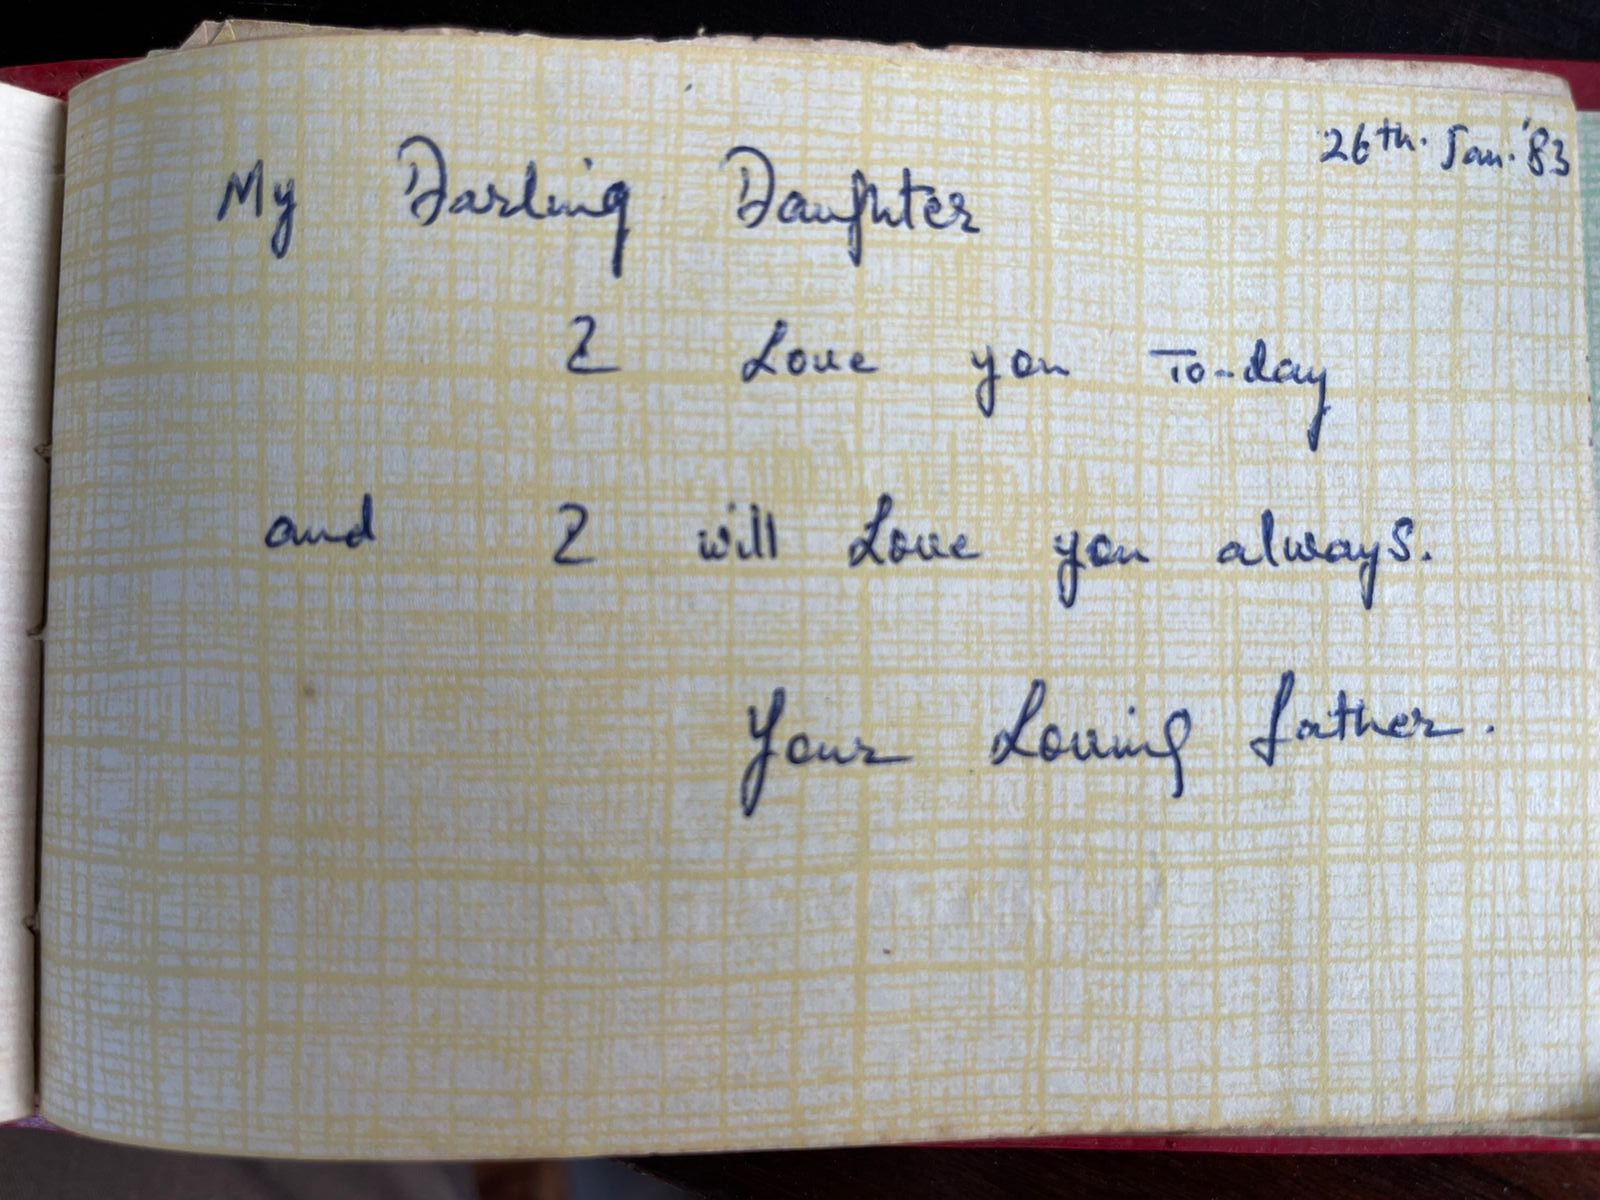 26th. Jan. '83
My Darling Daughter
I Love you To-day
and I will Love you always.
Your Loving father.